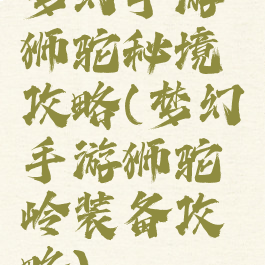 梦幻手游
狮驼秘境
攻略(梦幻
手游狮驼
岭装备攻
略)